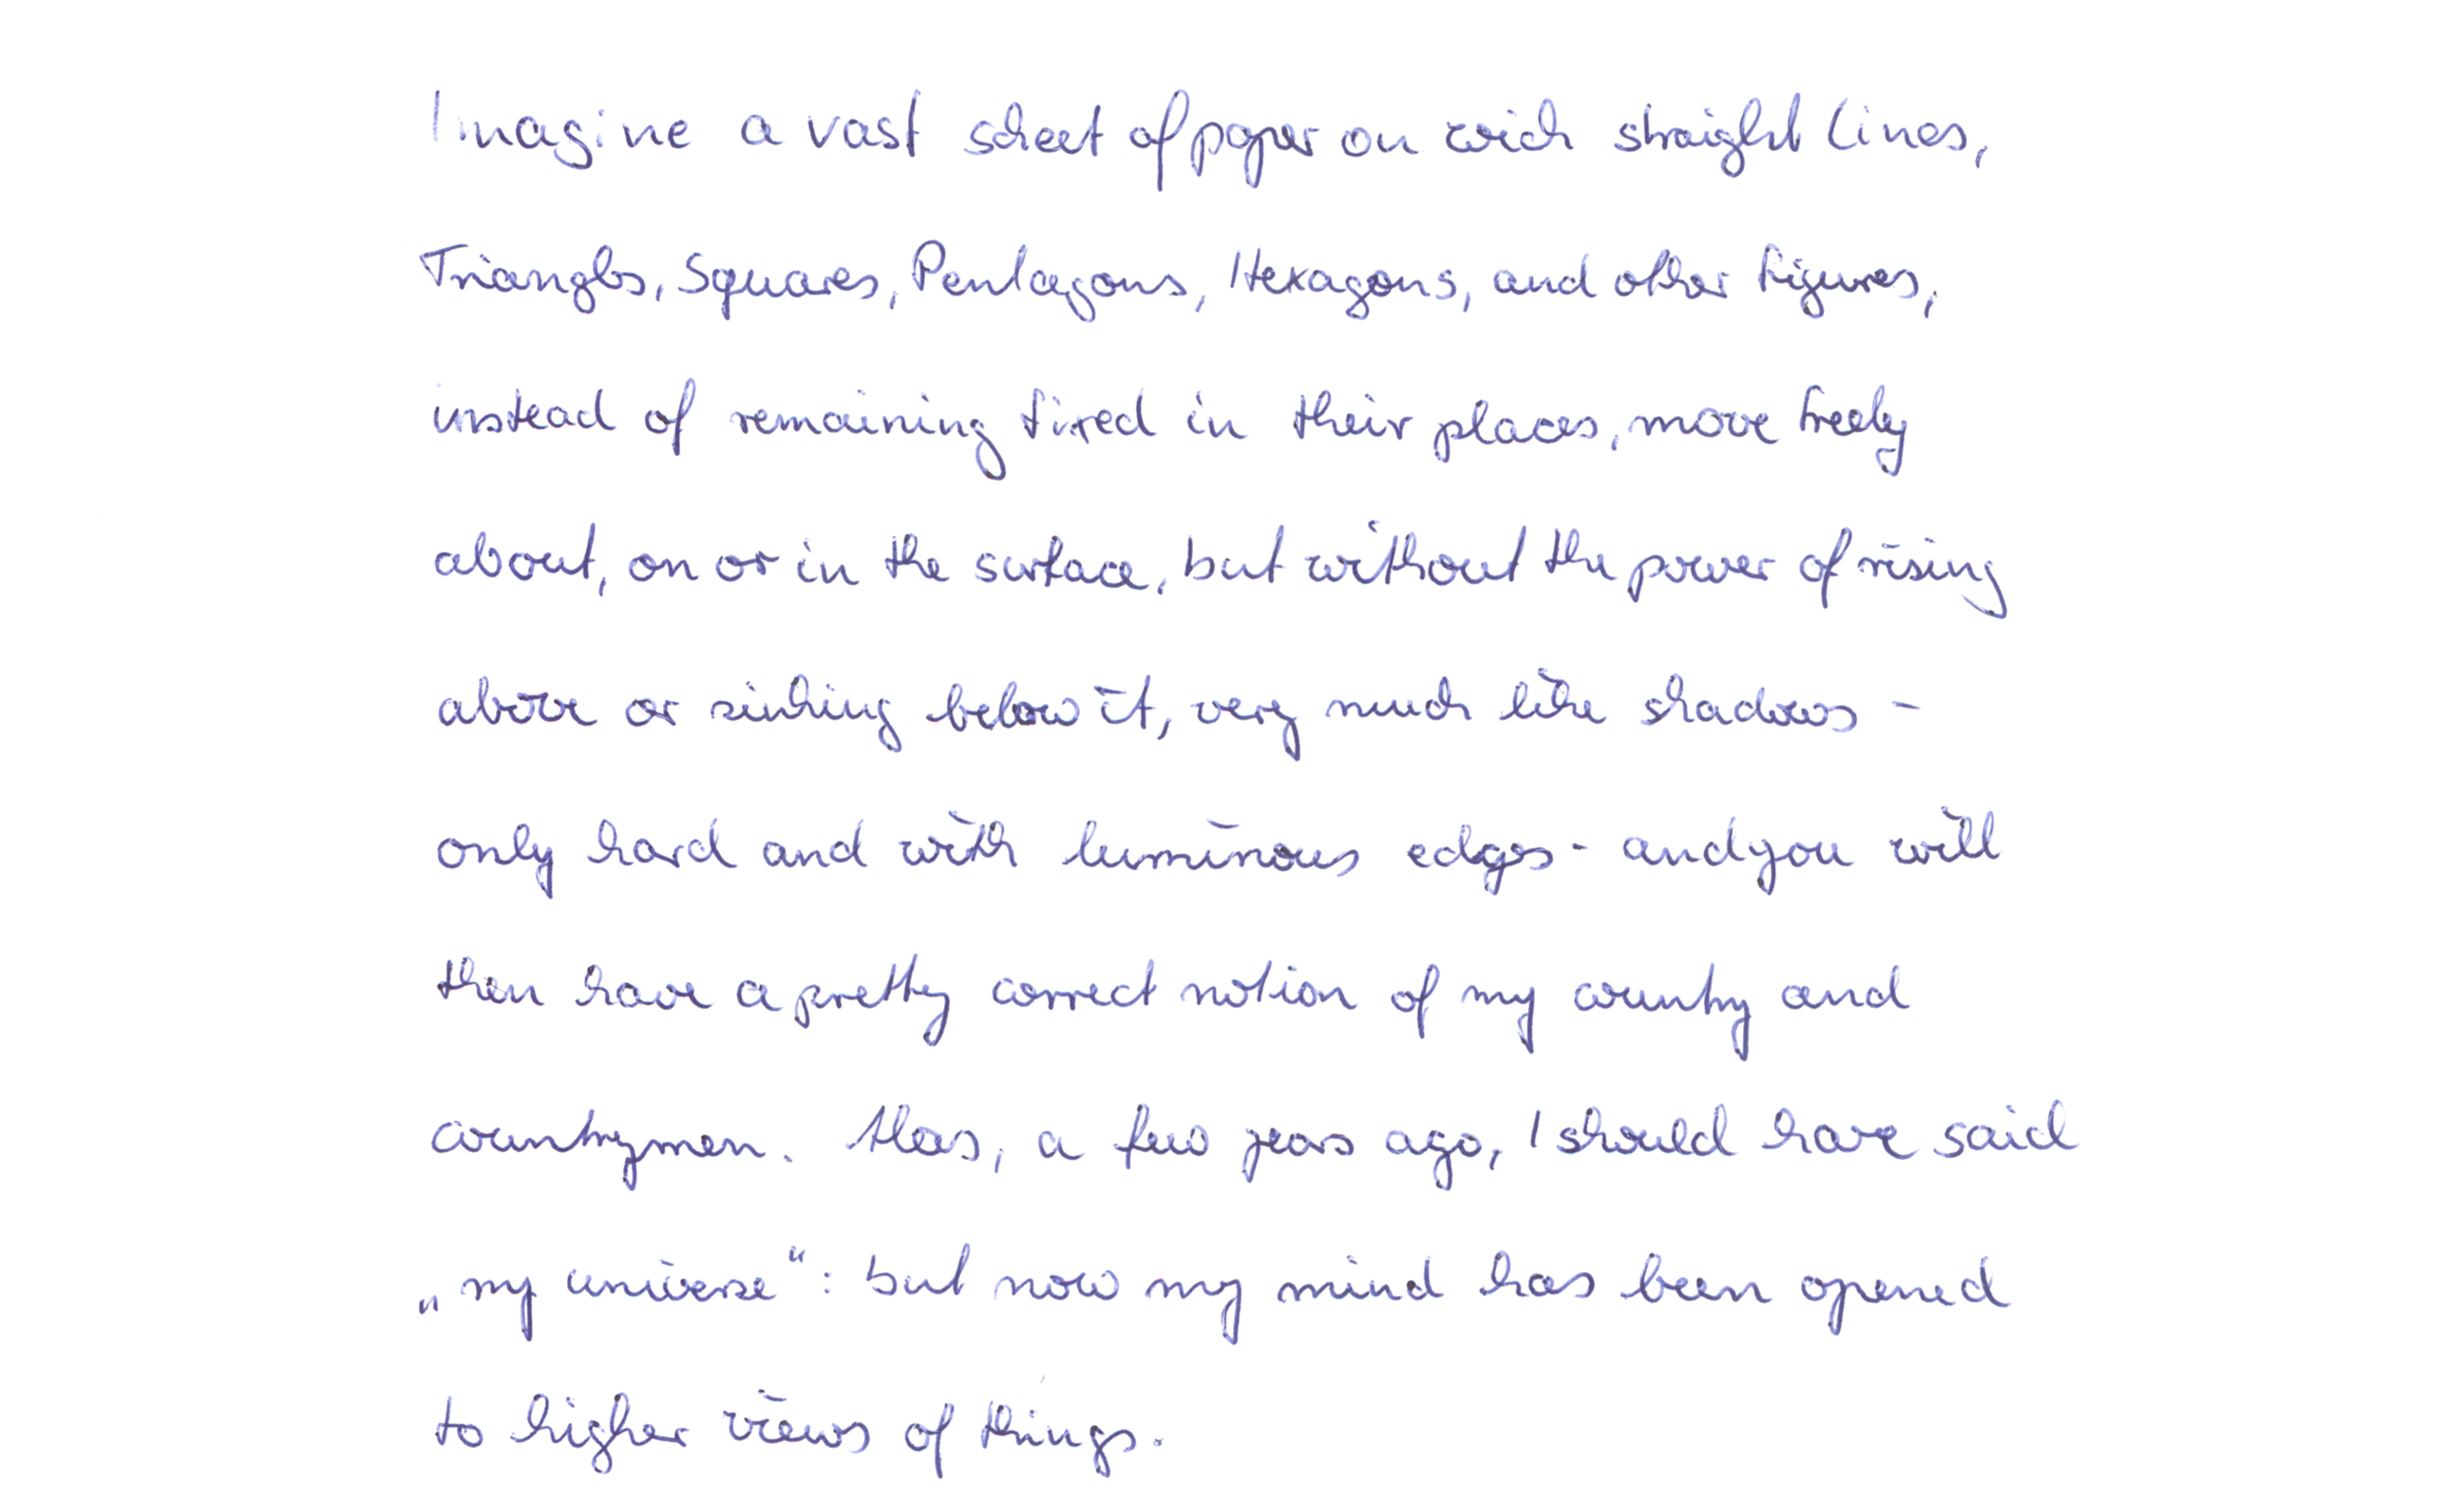 Imagine a vast scheet of paper on wich straight lines,
Triangles, Squares, Pentagons, Hexagons, and other figures,
instead of remaining fixed in their places, move freely
about, on or in the surface, but without the power of rising
above or sinking below it, very much like shadows -
only hard and with luminous edges - and you will
then have a pretty correct notion of my country and
countrymen. Alas, a few years ago, I should have said
„my universe“: but now my mind has been opened
to higher views of things.